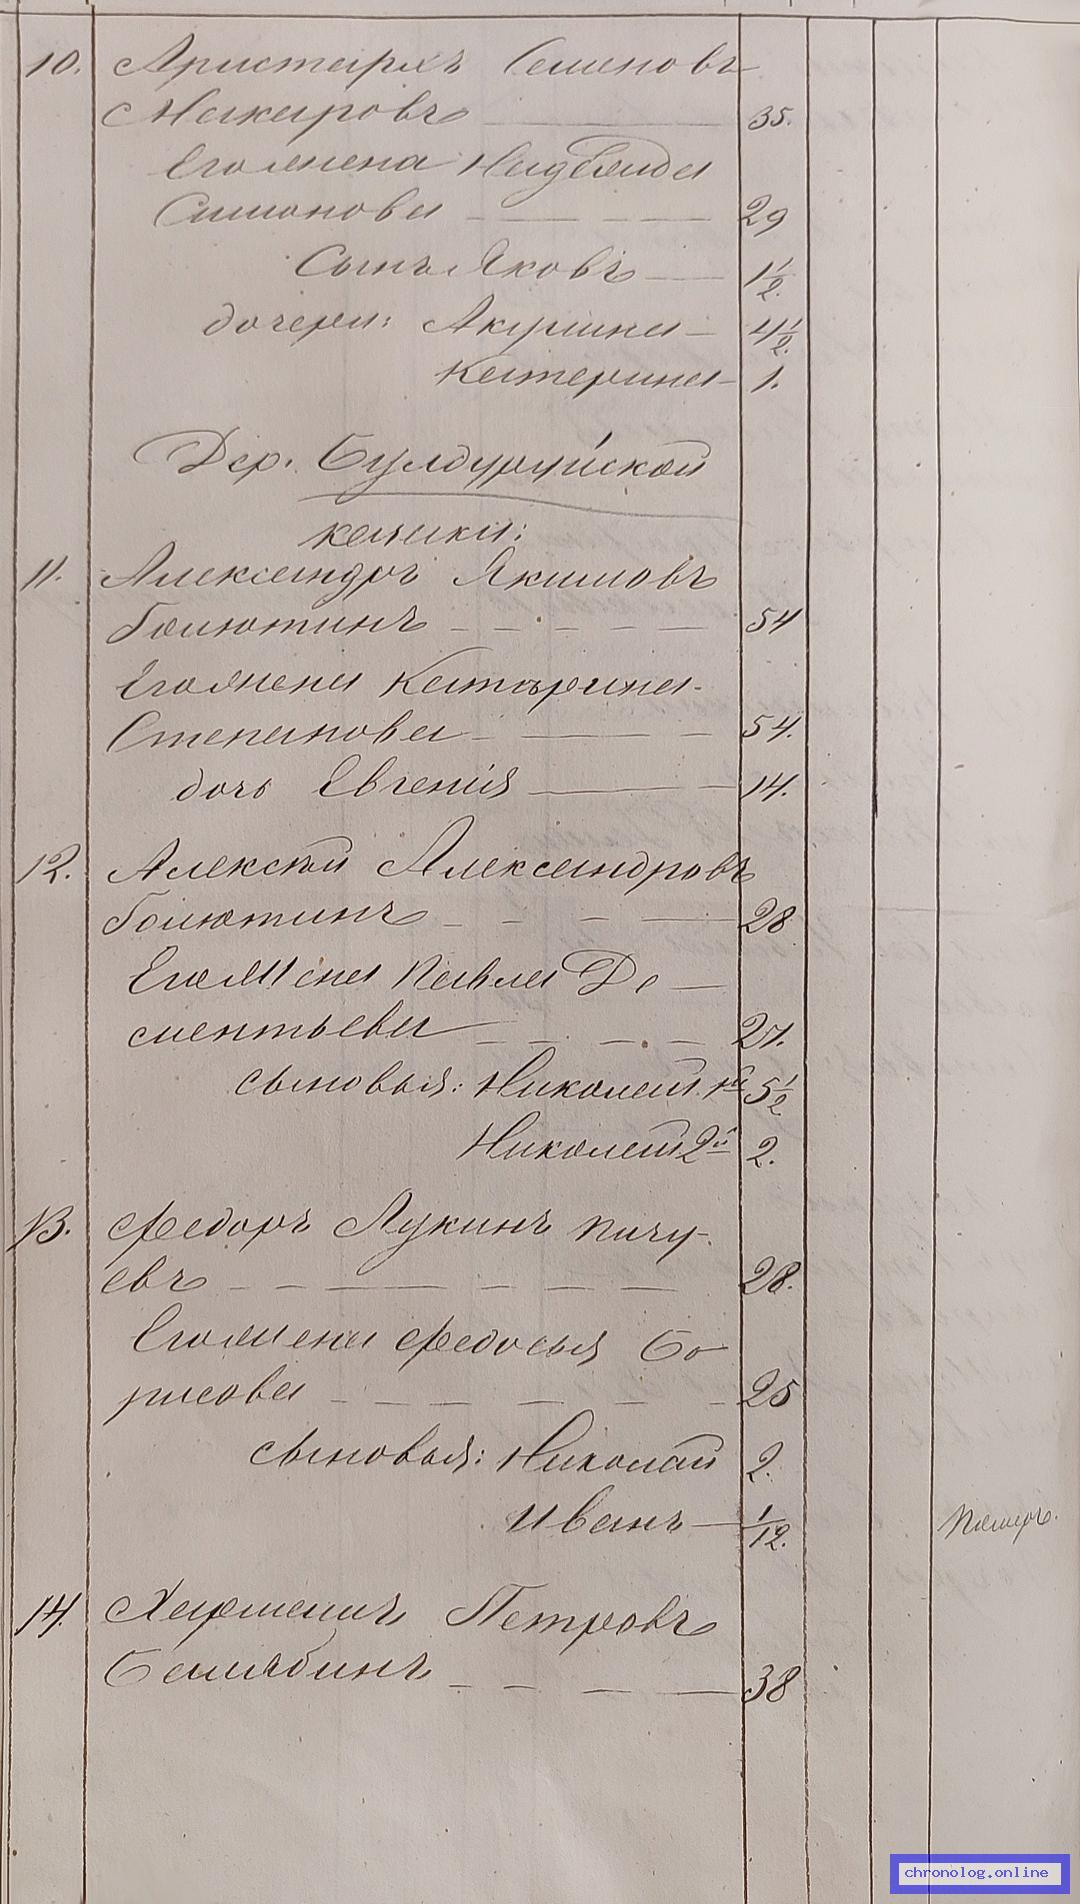 10. Аристархъ Семеновъ
Макаровъ 35.
Его жена Надежда
Симонова 29
Сынъ Яковъ 1 1/2.
дочери: Акулина 4 1/2.
Катерина 1.
Дер. Булдуруйской
казаки:
11. Александръ Якимовъ
Гаютинъ 54
Его жена Катерина
Степанова 54.
дочь Евгенія 14.
12. Алексѣй Александровъ
Гаютинъ 28
Его жена Павла Де
ментьева 27.
сыновья: Николай 1й 5 1/2
Николай 2й 2.
13. Федоръ Лукинъ Пичу-
евъ 28.
Его жена Федосья Бо
рисова 25
сыновья: Николай 2.
Иванъ 1/12.
Померъ.
14. Харлампій Петровъ
38
chronolog.online